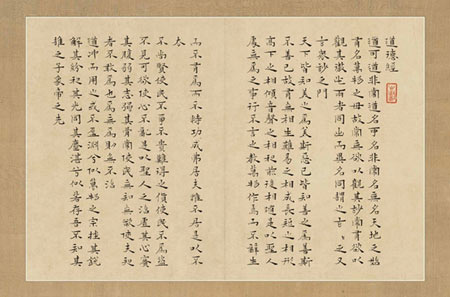 道德經
道可道非常道名可名非常名無名天地之始
有名萬物之母故常無欲以觀其妙常有欲以
觀其徼此兩者同出而異名同謂之玄之又
玄眾妙之門
天下皆知美之為美斯惡已皆知善之為善斯
不善已故有無相生難易之相成長短之相形
高下之相傾音聲之相和前後相隨是以聖人
處無為之事行不言之教萬物作焉而不辭生
而不有為而不恃功成弗居夫唯不居是以不
去
不尚賢使民不爭不貴難得之貨使民不為盜
不見可欲使心不亂是以聖人之治虛其心實
其腹弱其志強其骨常使民無知無欲使夫知
者不敢為也為無為則無不治
道沖而用之或不盈淵兮似萬物之宗挫其銳
解其紛和其光同其塵湛兮似若存吾不知其
誰之子象帝之先